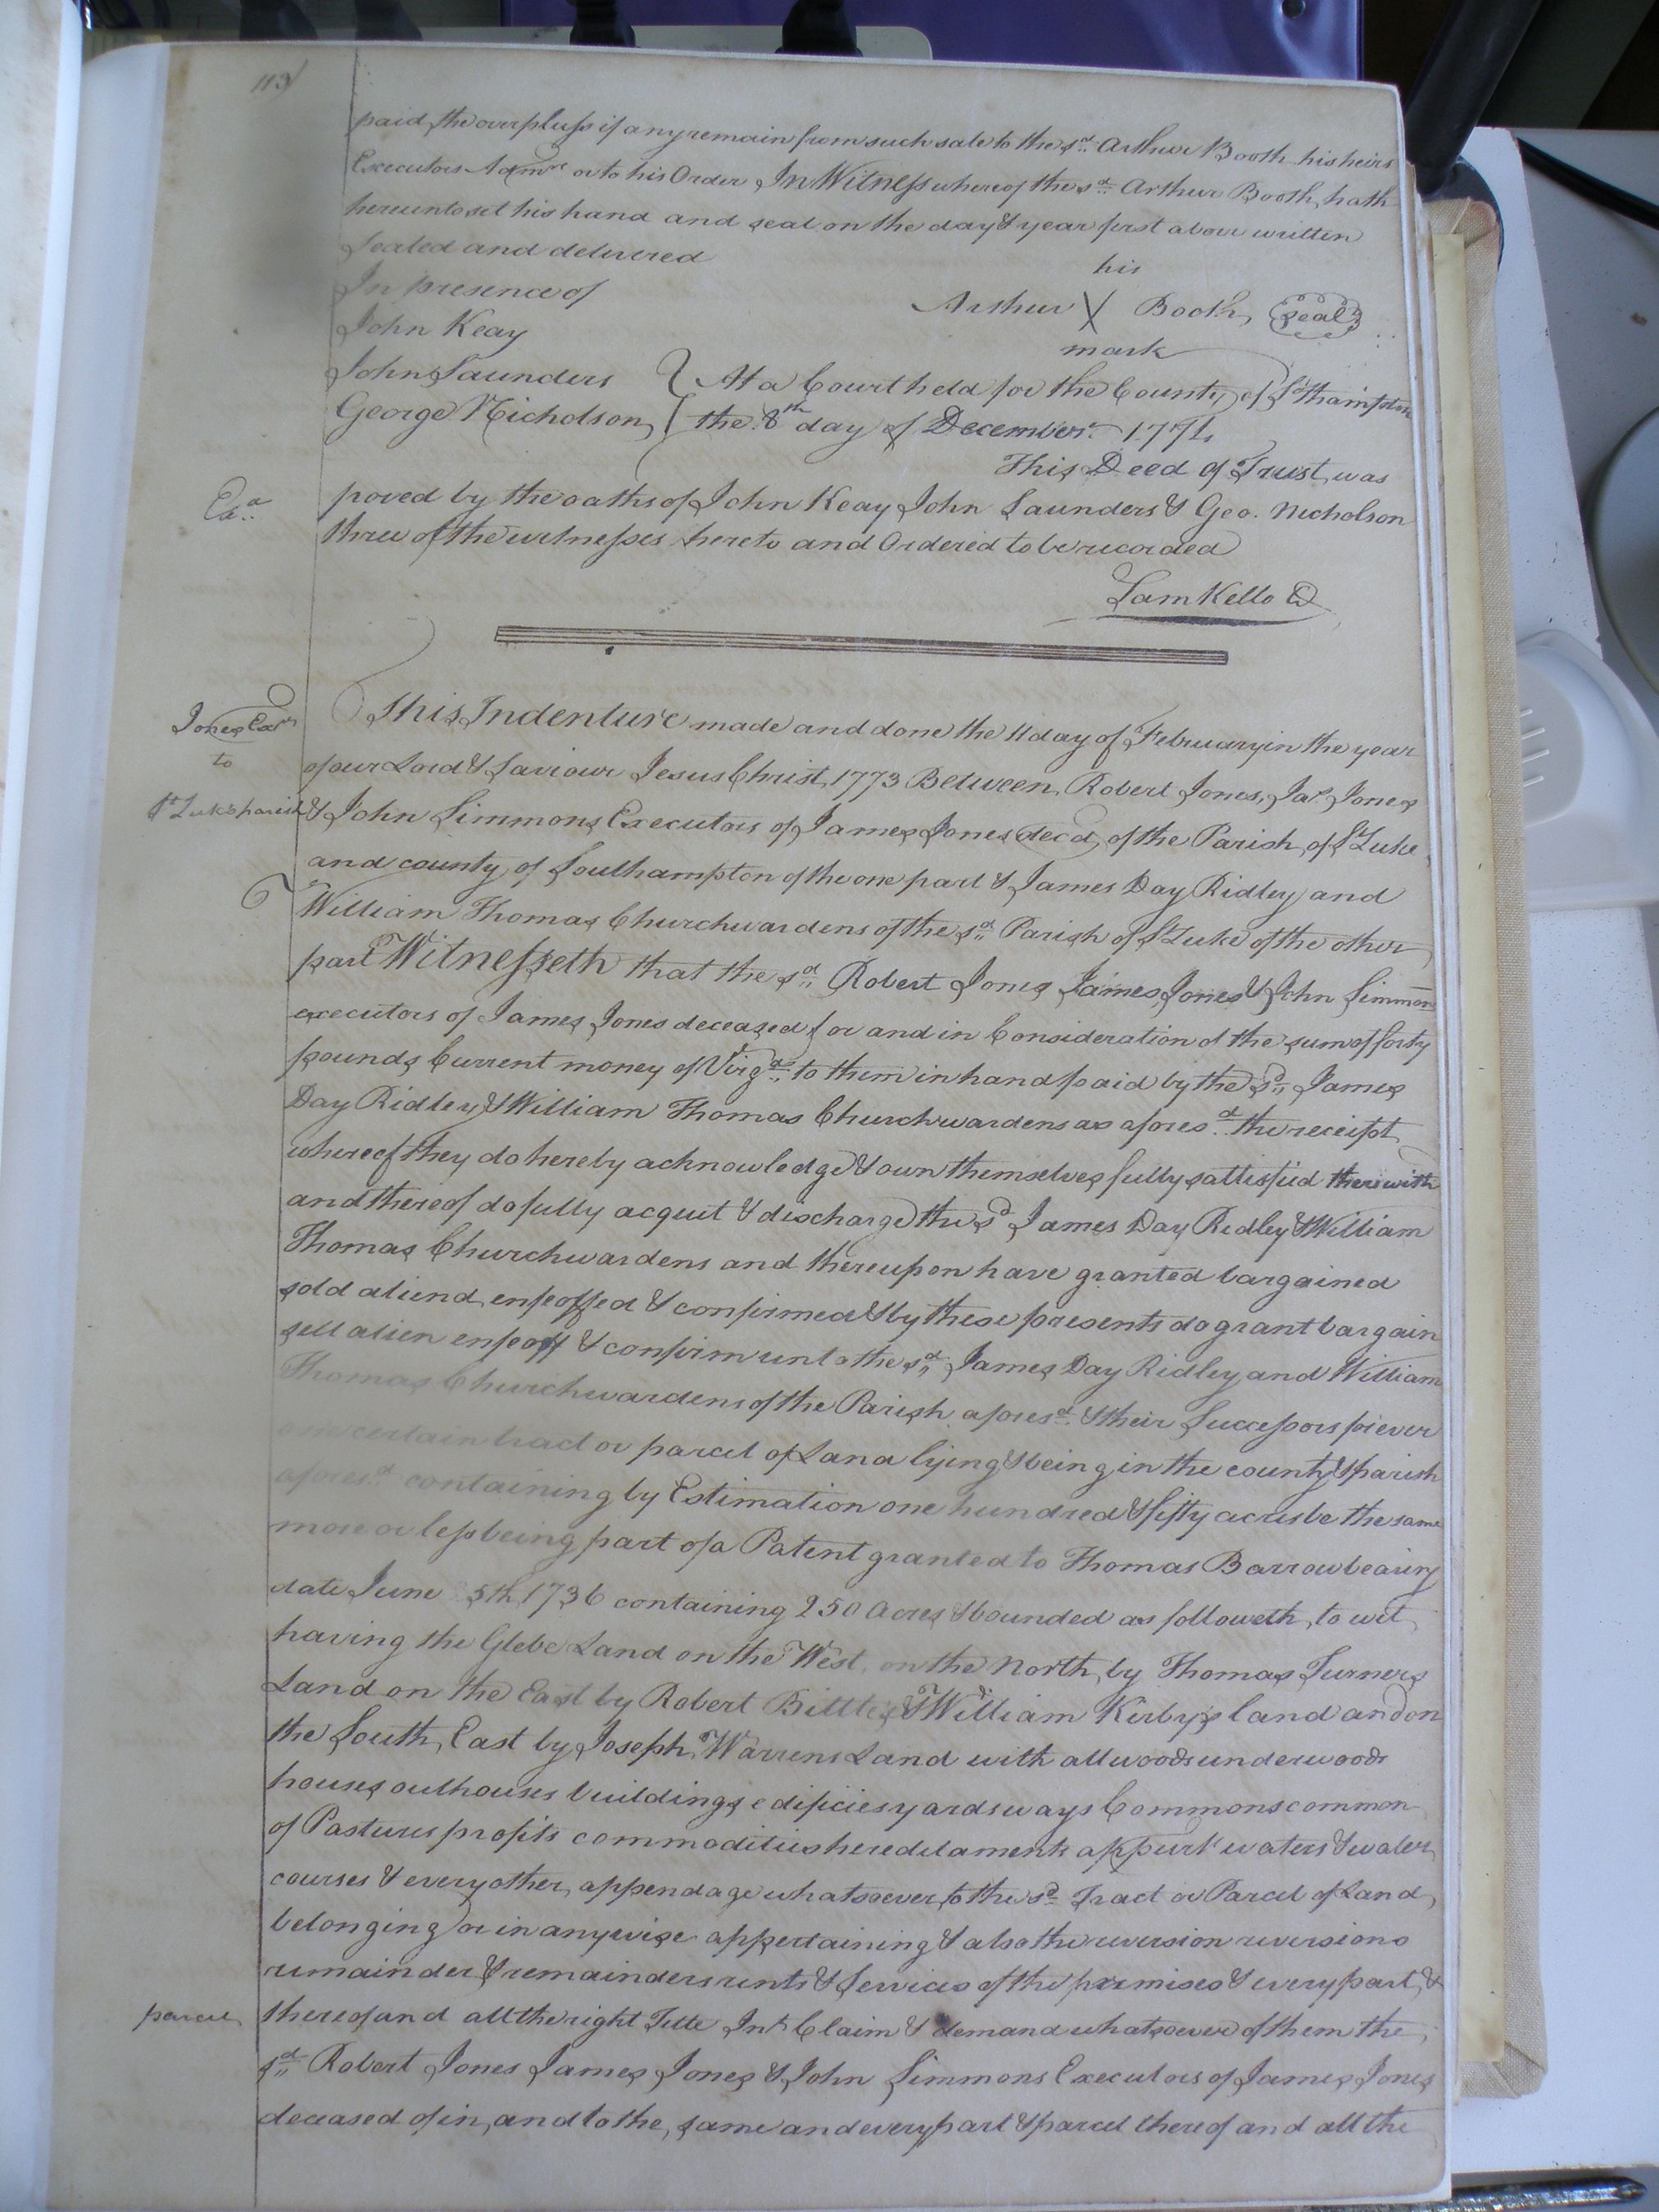 113
paid, the overpluss if any remain from such sale to the sd. Arthur Booth his heirs
Executors Admrs or to his Order In Witness whereof the sd. Arthur Booth, hath
hereunto set his hand and seal on the day & year first above written
Sealed and delivered
In presence of
his
Arthur X Booth, Seal
mark
John Keay
John Saunders
George Nicholson
At a Court held for the County of Sothampton
the 8th day of December
This Deed of Trust, was
Exd.
poved by the oaths of John Keay John Saunders & Geo. Nicholson
three of the witnesses hereto and Ordered to be recorded
Sam Kello
Jones Exrs
to
St Luke's parish
This Indenture made and done the 11 day of February in the year
of our Lord & Saviour Jesus Christ, 1773 Between, Robert Jones, Jas. Jones
& John Simmons Executors of James Jones decd, of the Parish of St Luke
and county of Southampton of the one part & James Day Ridley and
William Thomas Churchwardens of the sd. Parish of St Luke of the other
part Witnesseth that the sd. Robert Jones James Jones & John Simmons
executors of James Jones deceased for and in Consideration of the sum of forty
pounds Current money of Virga. to them in hand paid by the sd. James
Day Ridley & William Thomas Churchwardens as afores.d the receipt
whereof they do hereby acknowledge & own themselves fully sattisfied therewith
and thereof do fully acquit & discharge the sd James Day Ridley & William
Thomas Churchwardens and thereupon have granted bargained
sold aliend, enfeoffed & confirmed & by these presents do grant bargain
sell alien enfeoff & confirm unto the sd. James Day Ridley and William
Thomas Churchwardens of the Parish, aforesd. & their Successors forever
one certain tract or parcel of Land lying & being in the county & parish
aforesd. containing by Estimation one hundred & fifty acres be the same
more or less being part of a Patent granted to Thomas Barrow bearing
date June 5th 1736 containing 250 Acres & bounded as followeth, to wit,
having the Glebe Land on the West, on the North, by Thomas Turners
Land on the East by Robert Bittles & William Kirby's land and on
the South, East by Joseph Warrens Land with all woods underwoods
houses outhouses buildings edificies yards ways Commons common
of Pastures profits commodities hereditaments appurt. waters & water
courses & every other, appendage whatsoever, to the sd. Tract or Parcel of Land,
belonging or in anywise appertaining & also the reversion reversions
remainder & remainders rents & Services of the premises & every part, &
parcel,
thereof and all the right Title Int. Claim & demand whatsoever of them the
sd. Robert Jones James Jones & John Simmons Executors of James Jones
deceased of in, and to the, same and every part & parcel thereof and all the